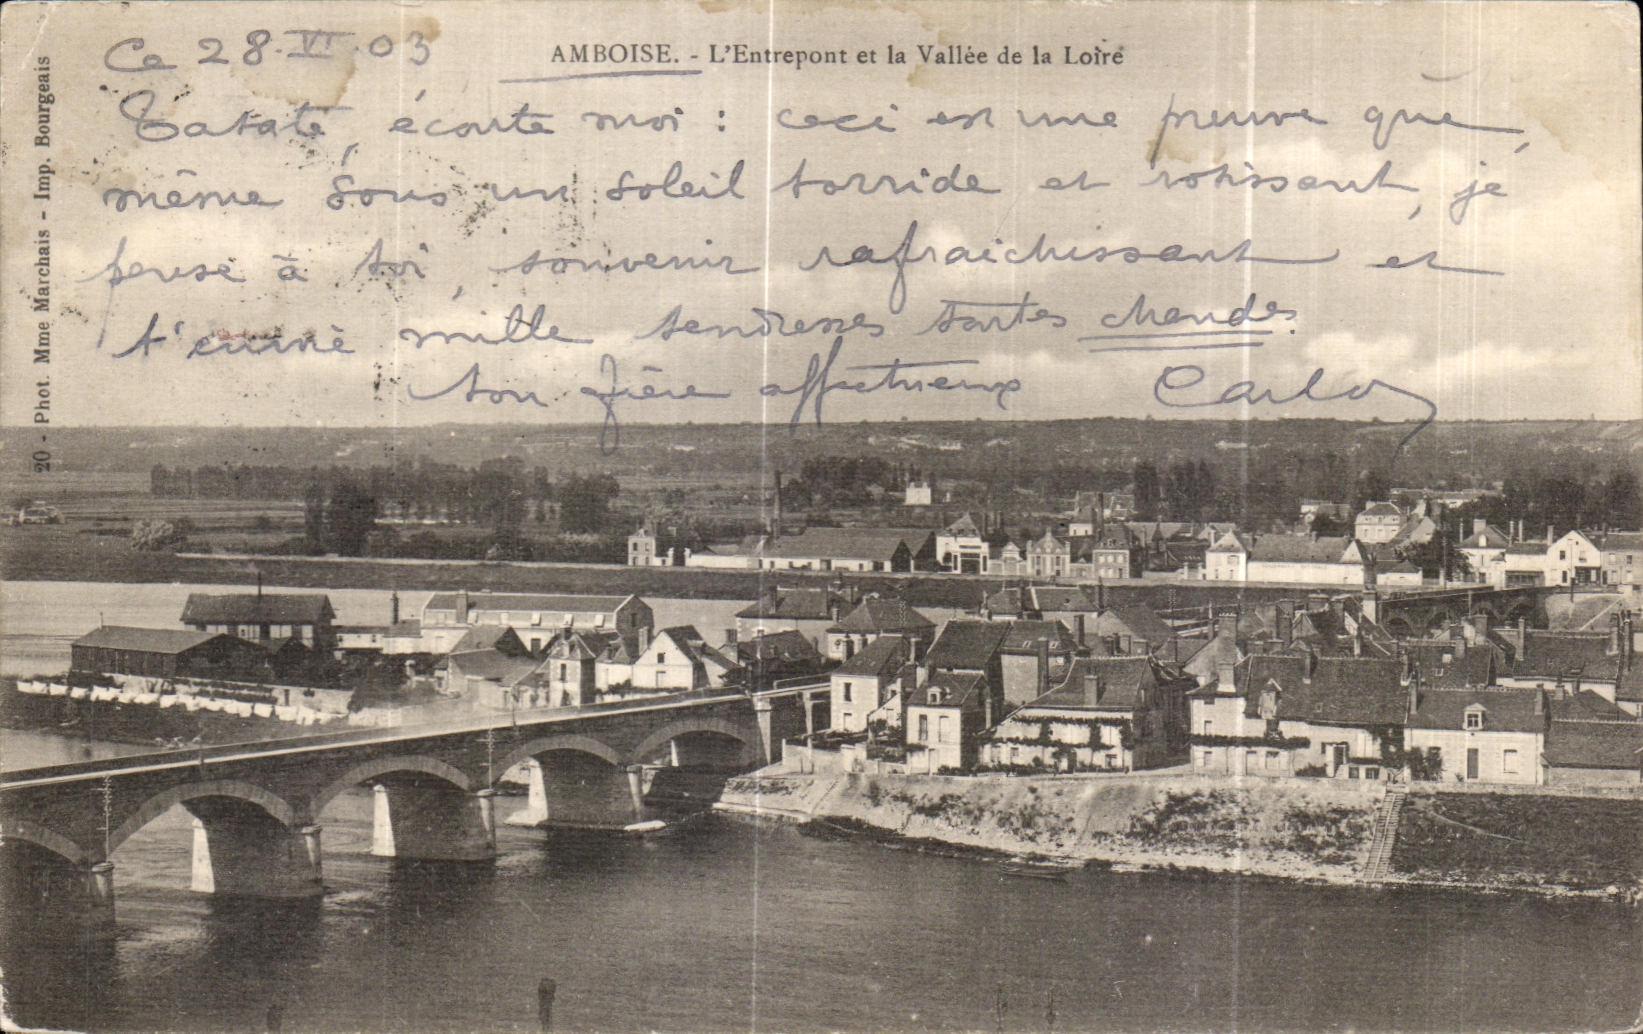 AMBOISE. - L'Entrepont et la Vallée de la Loire
Ce 28-VI-03
Tatate, écoute moi : ceci est une preuve que,
même sous un soleil torride et rotissant, je
pense à toi, souvenir rafraichissant et
t'envoie mille tendresses toutes chaudes.
ton frère affectueux Carlo
20 - Phot. Mme Marchais - Imp. Bourgeais